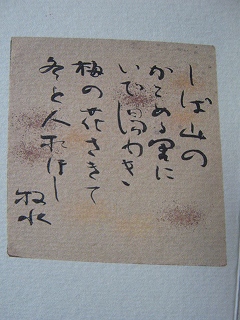 しば山の
かこめる里に
いで湯わき
梅の花さきて
冬を人おほし
牧水